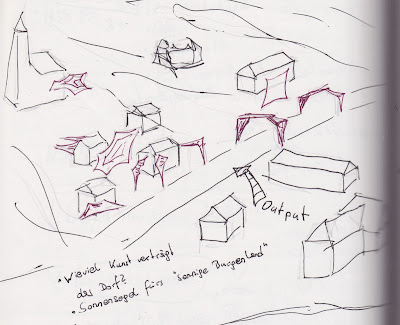 Output
• Wieviel Kunst verträgt
das Dorf?
• Sonnensegel fürs "sonnige Burgenland"